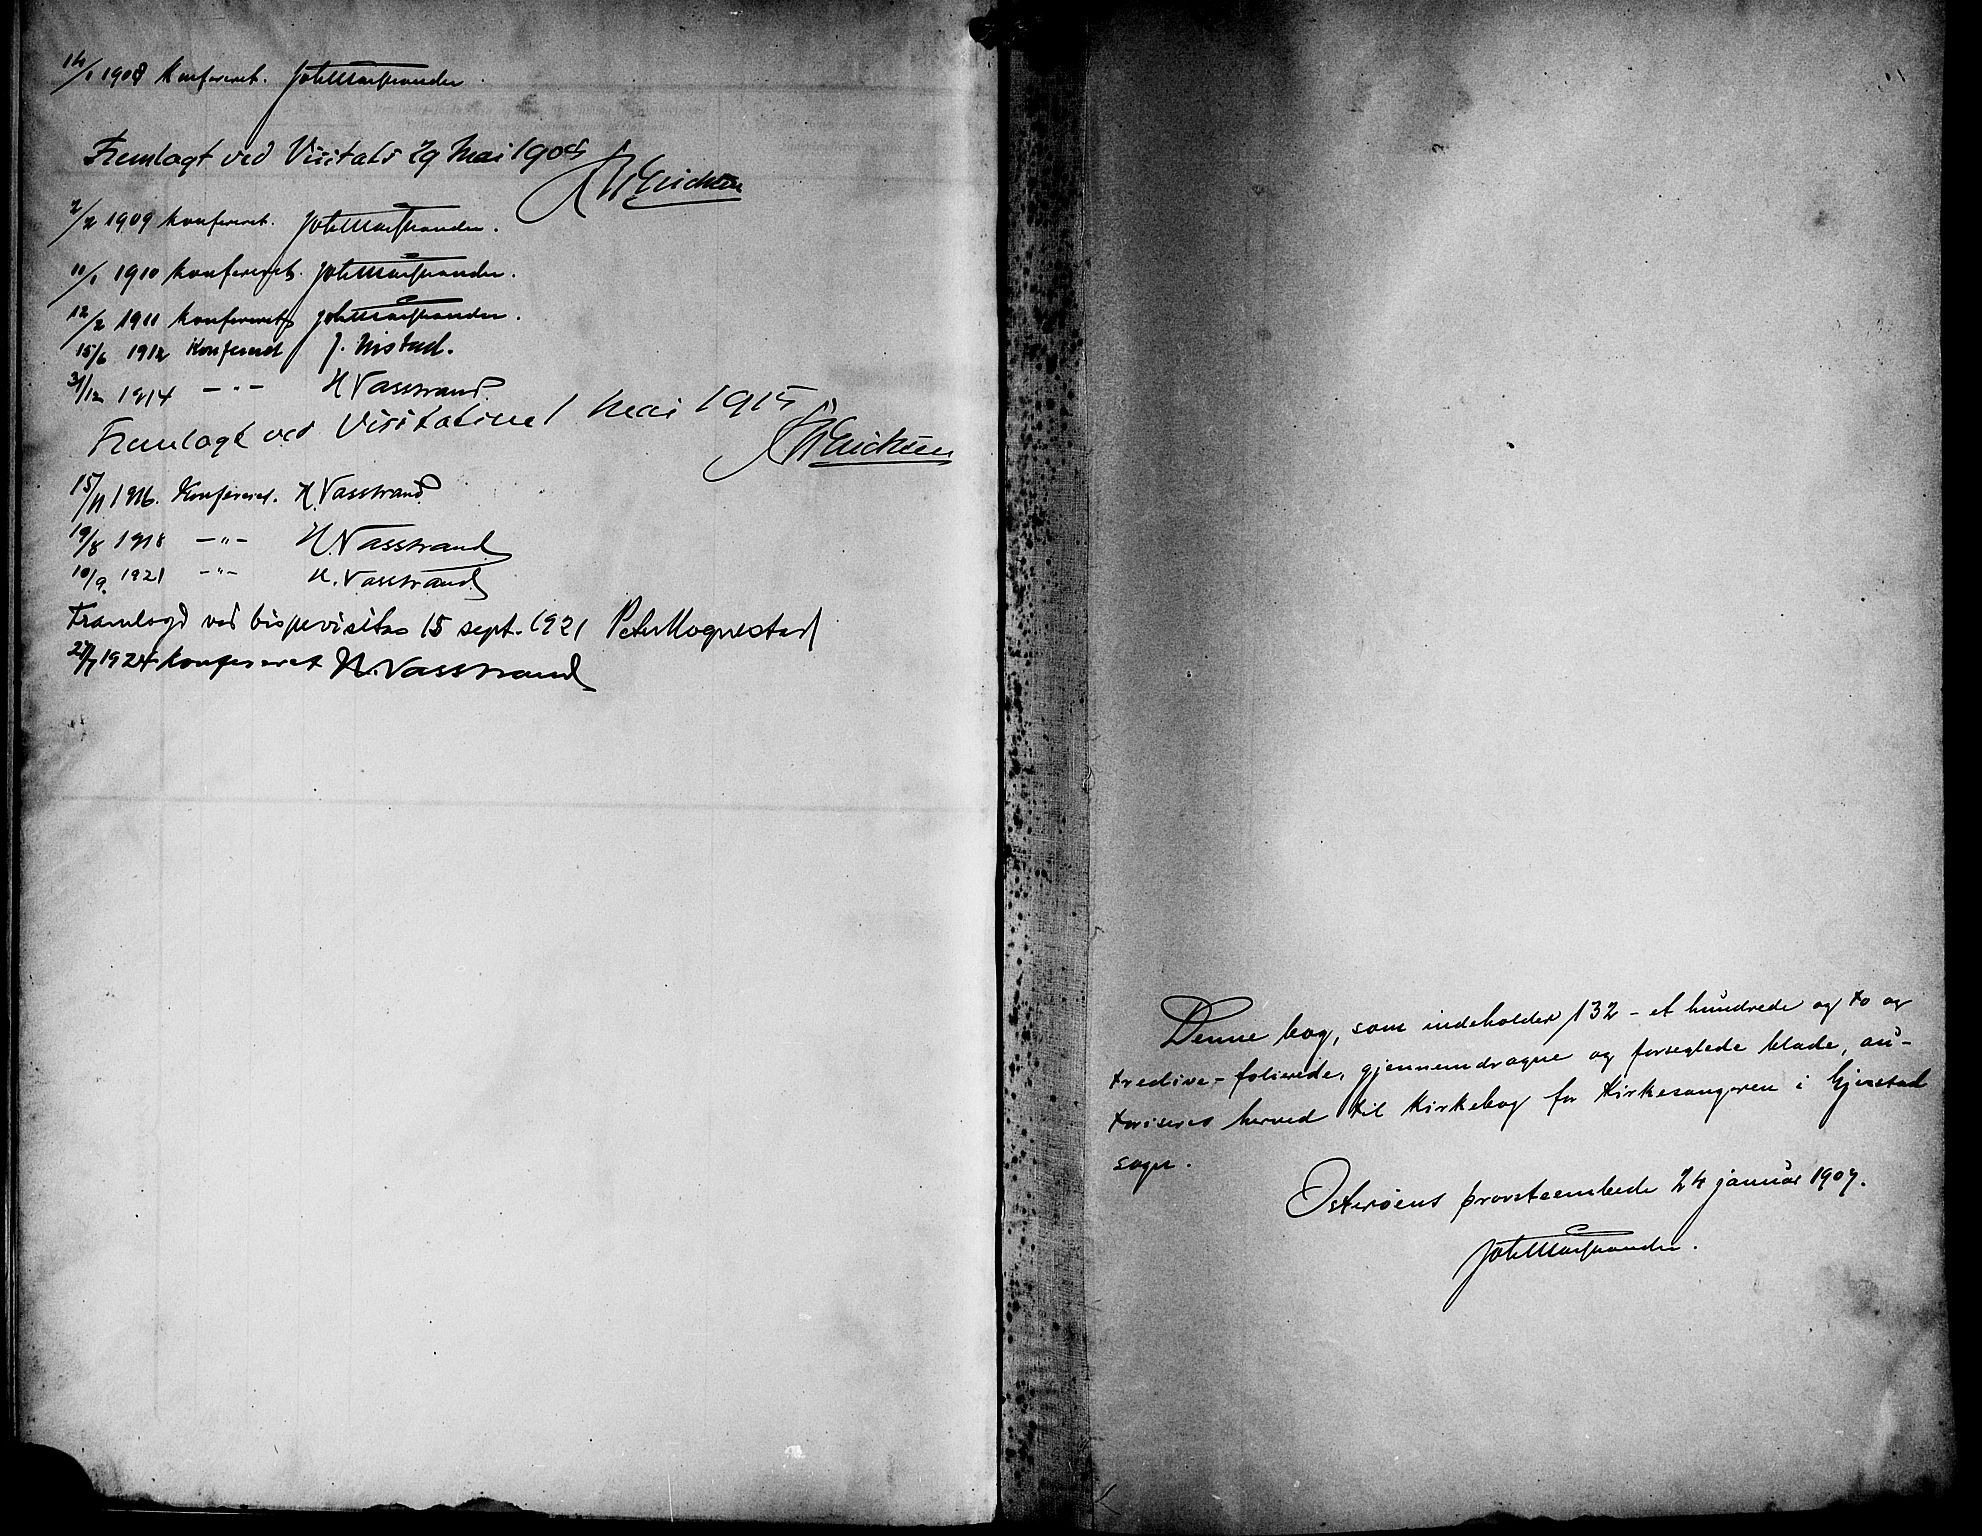 14/1 1908 Konfereret. Joh Markhander.
Fremlagt ved Visitats 29 Mai 1908
Erichsen
2/2 1909 Konfereret. Joh Markhander.
11/1 1910 Konfereret. Joh Markhander.
12/2 1911 Konfereret Joh Markhander.
15/6 1912 Konfereret J. Mistad.
31/12 1914 — " — H Vasstrand.
Fremlagt ved Visitatine 1 Mai 1915
Erichsen
15/11 1916. Konfereret. H. Vasstrand
19/8 1918 — " — H. Vasstrand
10/9. 1921 — " — H. Vasstrand.
Framlagd ved bispevisitas 15 sept. 1921 Peter Hognestad
27/7 1924 Konfereret H. Vasstrand
Denne bog, som indeholder 132 – et hundrede og to og
tredive – folierede, gjennemdragne og forseglede blade, au-
toriseres herved til kirkebog for kirkesangeren i Gjerstad
sogn.
Osterøens provsteembede 24 januar 1907.
Joh Markhander.